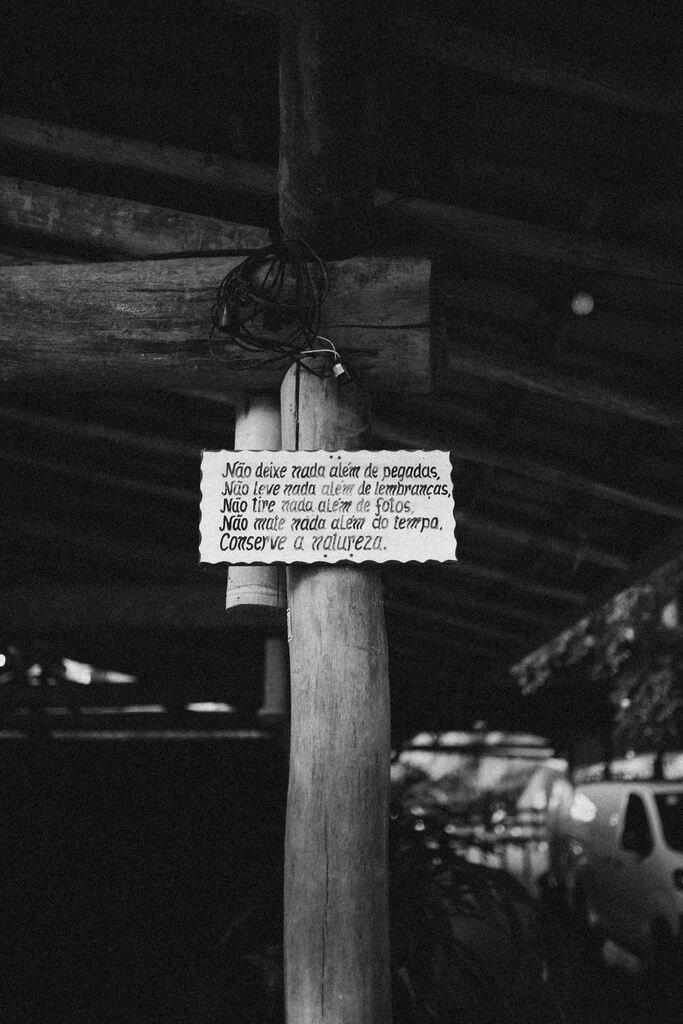 Não deixe nada além de pegadas,
Não leve nada além de lembranças,
Não tire nada além de fotos,
Não mate nada além do tempo,
Conserve a natureza.